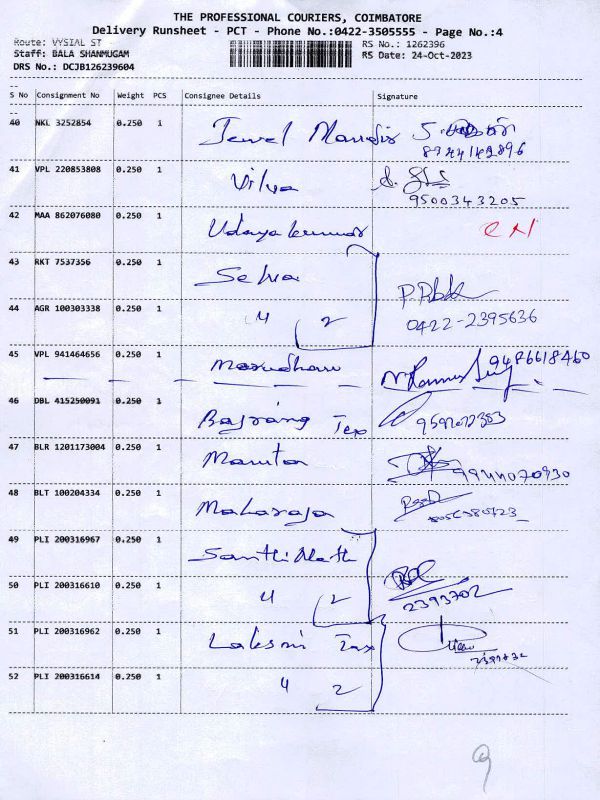 THE PROFESSIONAL COURIERS, COIMBATORE
Delivery Runsheet - PCT - Phone No.:0422-3505555 - Page No.:4
Route: VYSIAL ST RS No.: 1262396
Staff: BALA SHANMUGAM RS Date: 24-Oct-2023
DRS No.: DCJB126239604
S No Consignment No Weight PCS Consignee Details Signature
40 NKL 3252854 0.250 1 Jewel
41 VPL 220853808 0.250 1 Vilva
9500343205
42 MAA 862076080 0.250 1 Udayakumar
43 RKT 7537356 0.250 1 Selva
44 AGR 100303338 0.250 1 4 2 0422-2395636
45 VPL 941464656 0.250 1 9486618460
46 DBL 415250091 0.250 1 Bajrang Tex
47 BLR 1201173004 0.250 1 9944070930
48 BLT 100204334 0.250 1 Maharaja
49 PLI 200316967 0.250 1
50 PLI 200316610 0.250 1 4 2 2393702
51 PLI 200316962 0.250 1 Laksmi Tex
52 PLI 200316614 0.250 1 4 2